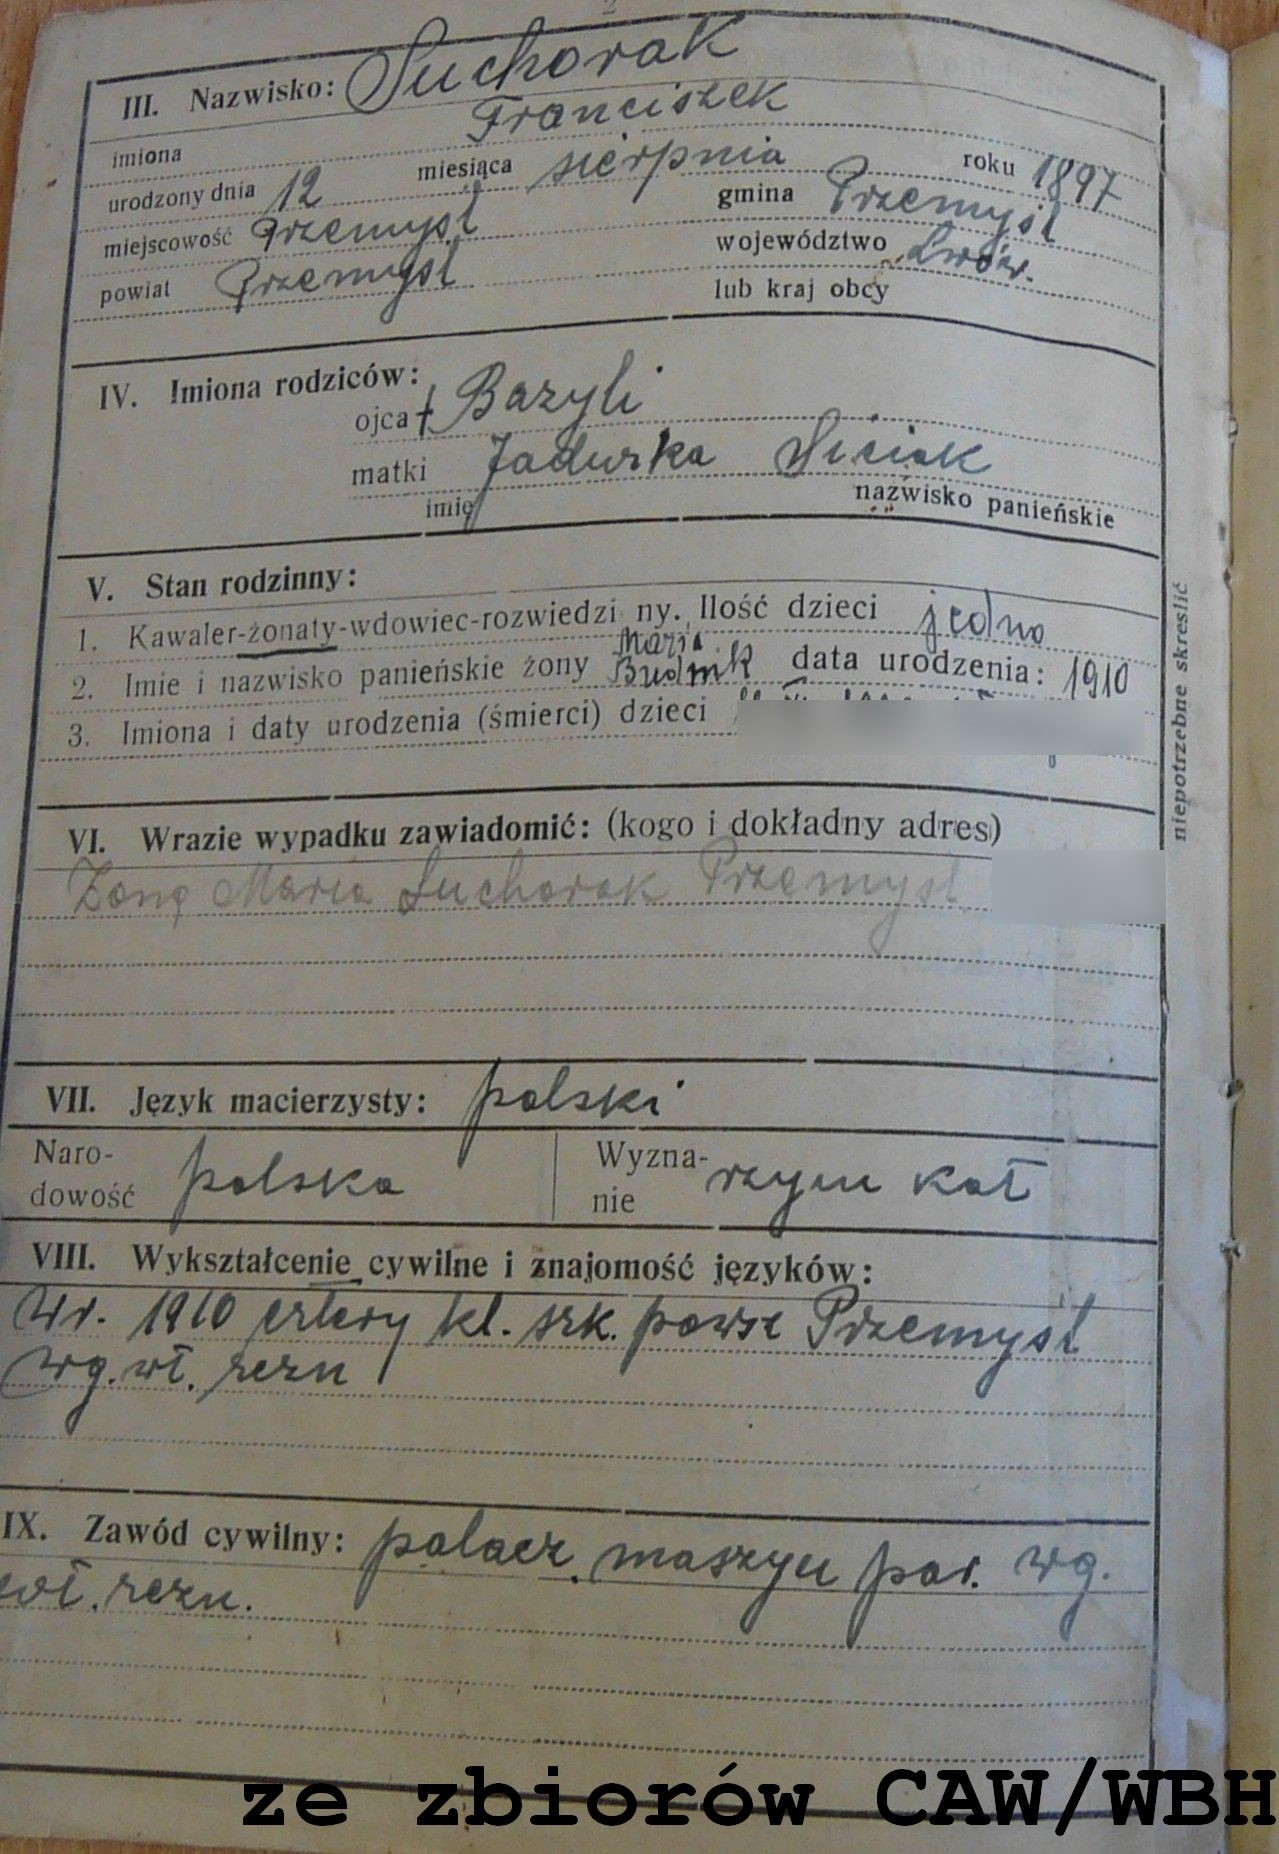 III. Nazwisko: Suchorak
imiona Franciszek
urodzony dnia 12 miesiąca sierpnia roku 1897
miejscowość Przemyśl gmina Przemyśl
powiat Przemyśl województwo Lwów.
lub kraj obcy
IV. Imiona rodziców:
ojca † Bazyli
matki Jadwika Siciak
imię nazwisko panieńskie
V. Stan rodzinny:
1. Kawaler-żonaty-wdowiec-rozwiedzi ny. Ilość dzieci jedno
2. Imie i nazwisko panieńskie żony Maria Budnik data urodzenia: 1910
3. Imiona i daty urodzenia (śmierci) dzieci
niepotrzebne skreślić
VI. Wrazie wypadku zawiadomić: (kogo i dokładny adres)
Żonę Maria Suchorak Przemyśl
VII. Język macierzysty: polski
Naro-dowość polska Wyzna-nie rzym kat
VIII. Wykształcenie cywilne i znajomość języków:
W r. 1910 cztery kl. szk. powsz Przemyśl
wg. wł. zezn
IX. Zawód cywilny: palacz maszyn par. wg.
wł. zezn.
ze zbiorów CAW/WBH